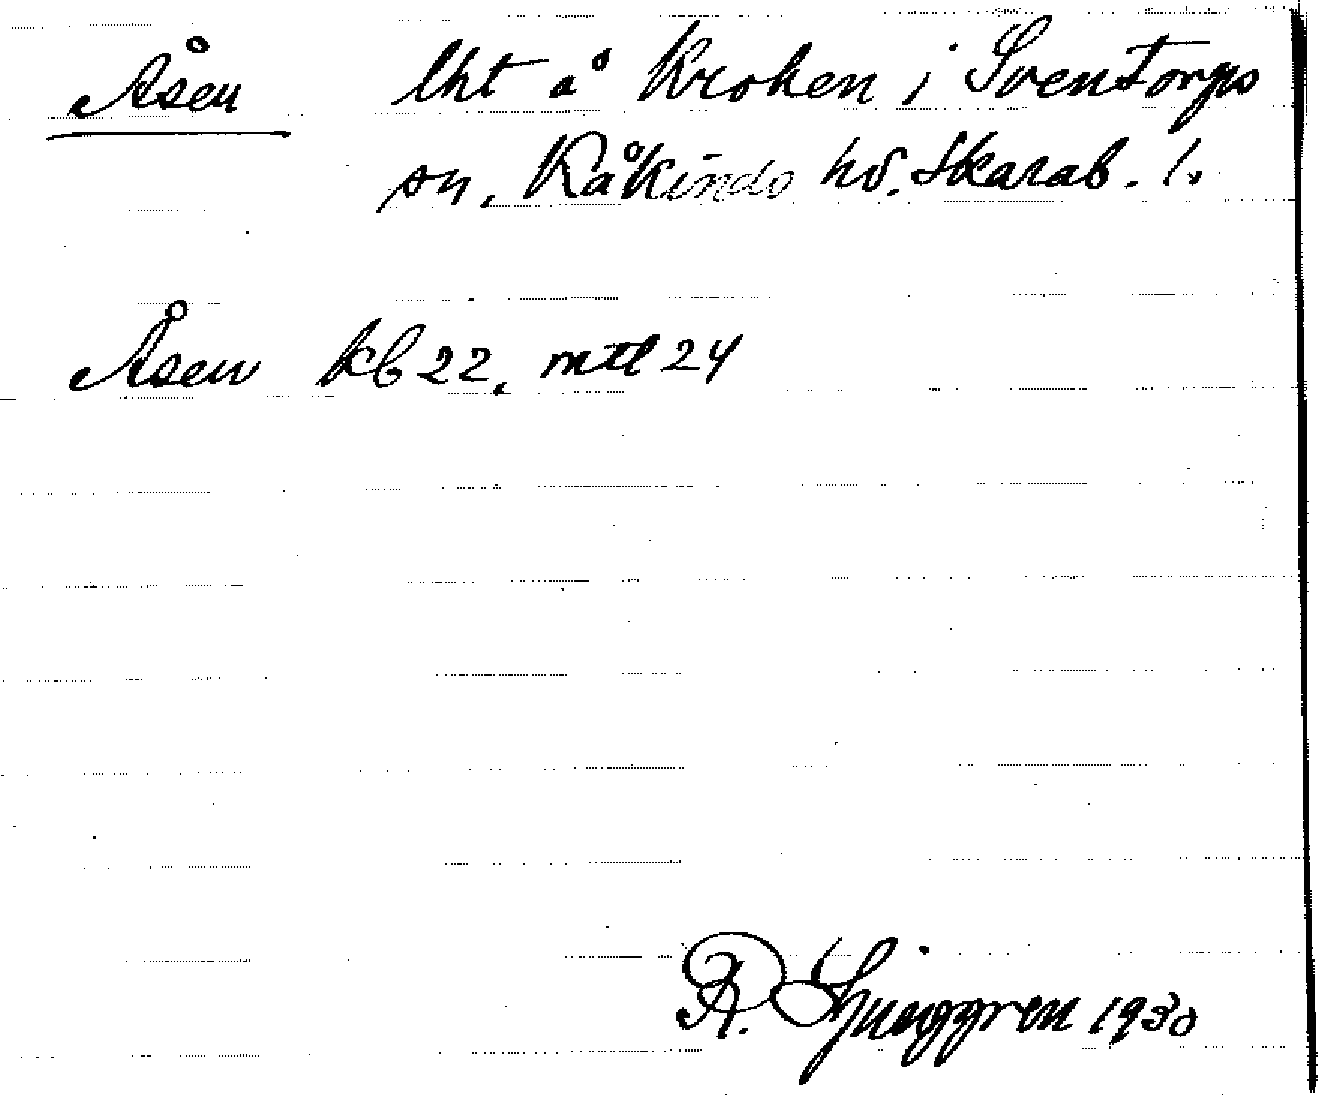 Åsen lht å Kroken i Sventorps
sn. Kåkinds hd. Skarab. l.
Åsen kb 22, mtl 24
R. Ljunggren 1930